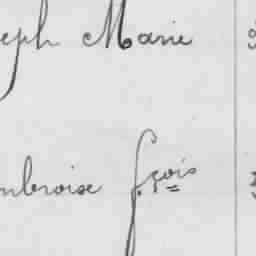 eph Marie
mbroise fçois